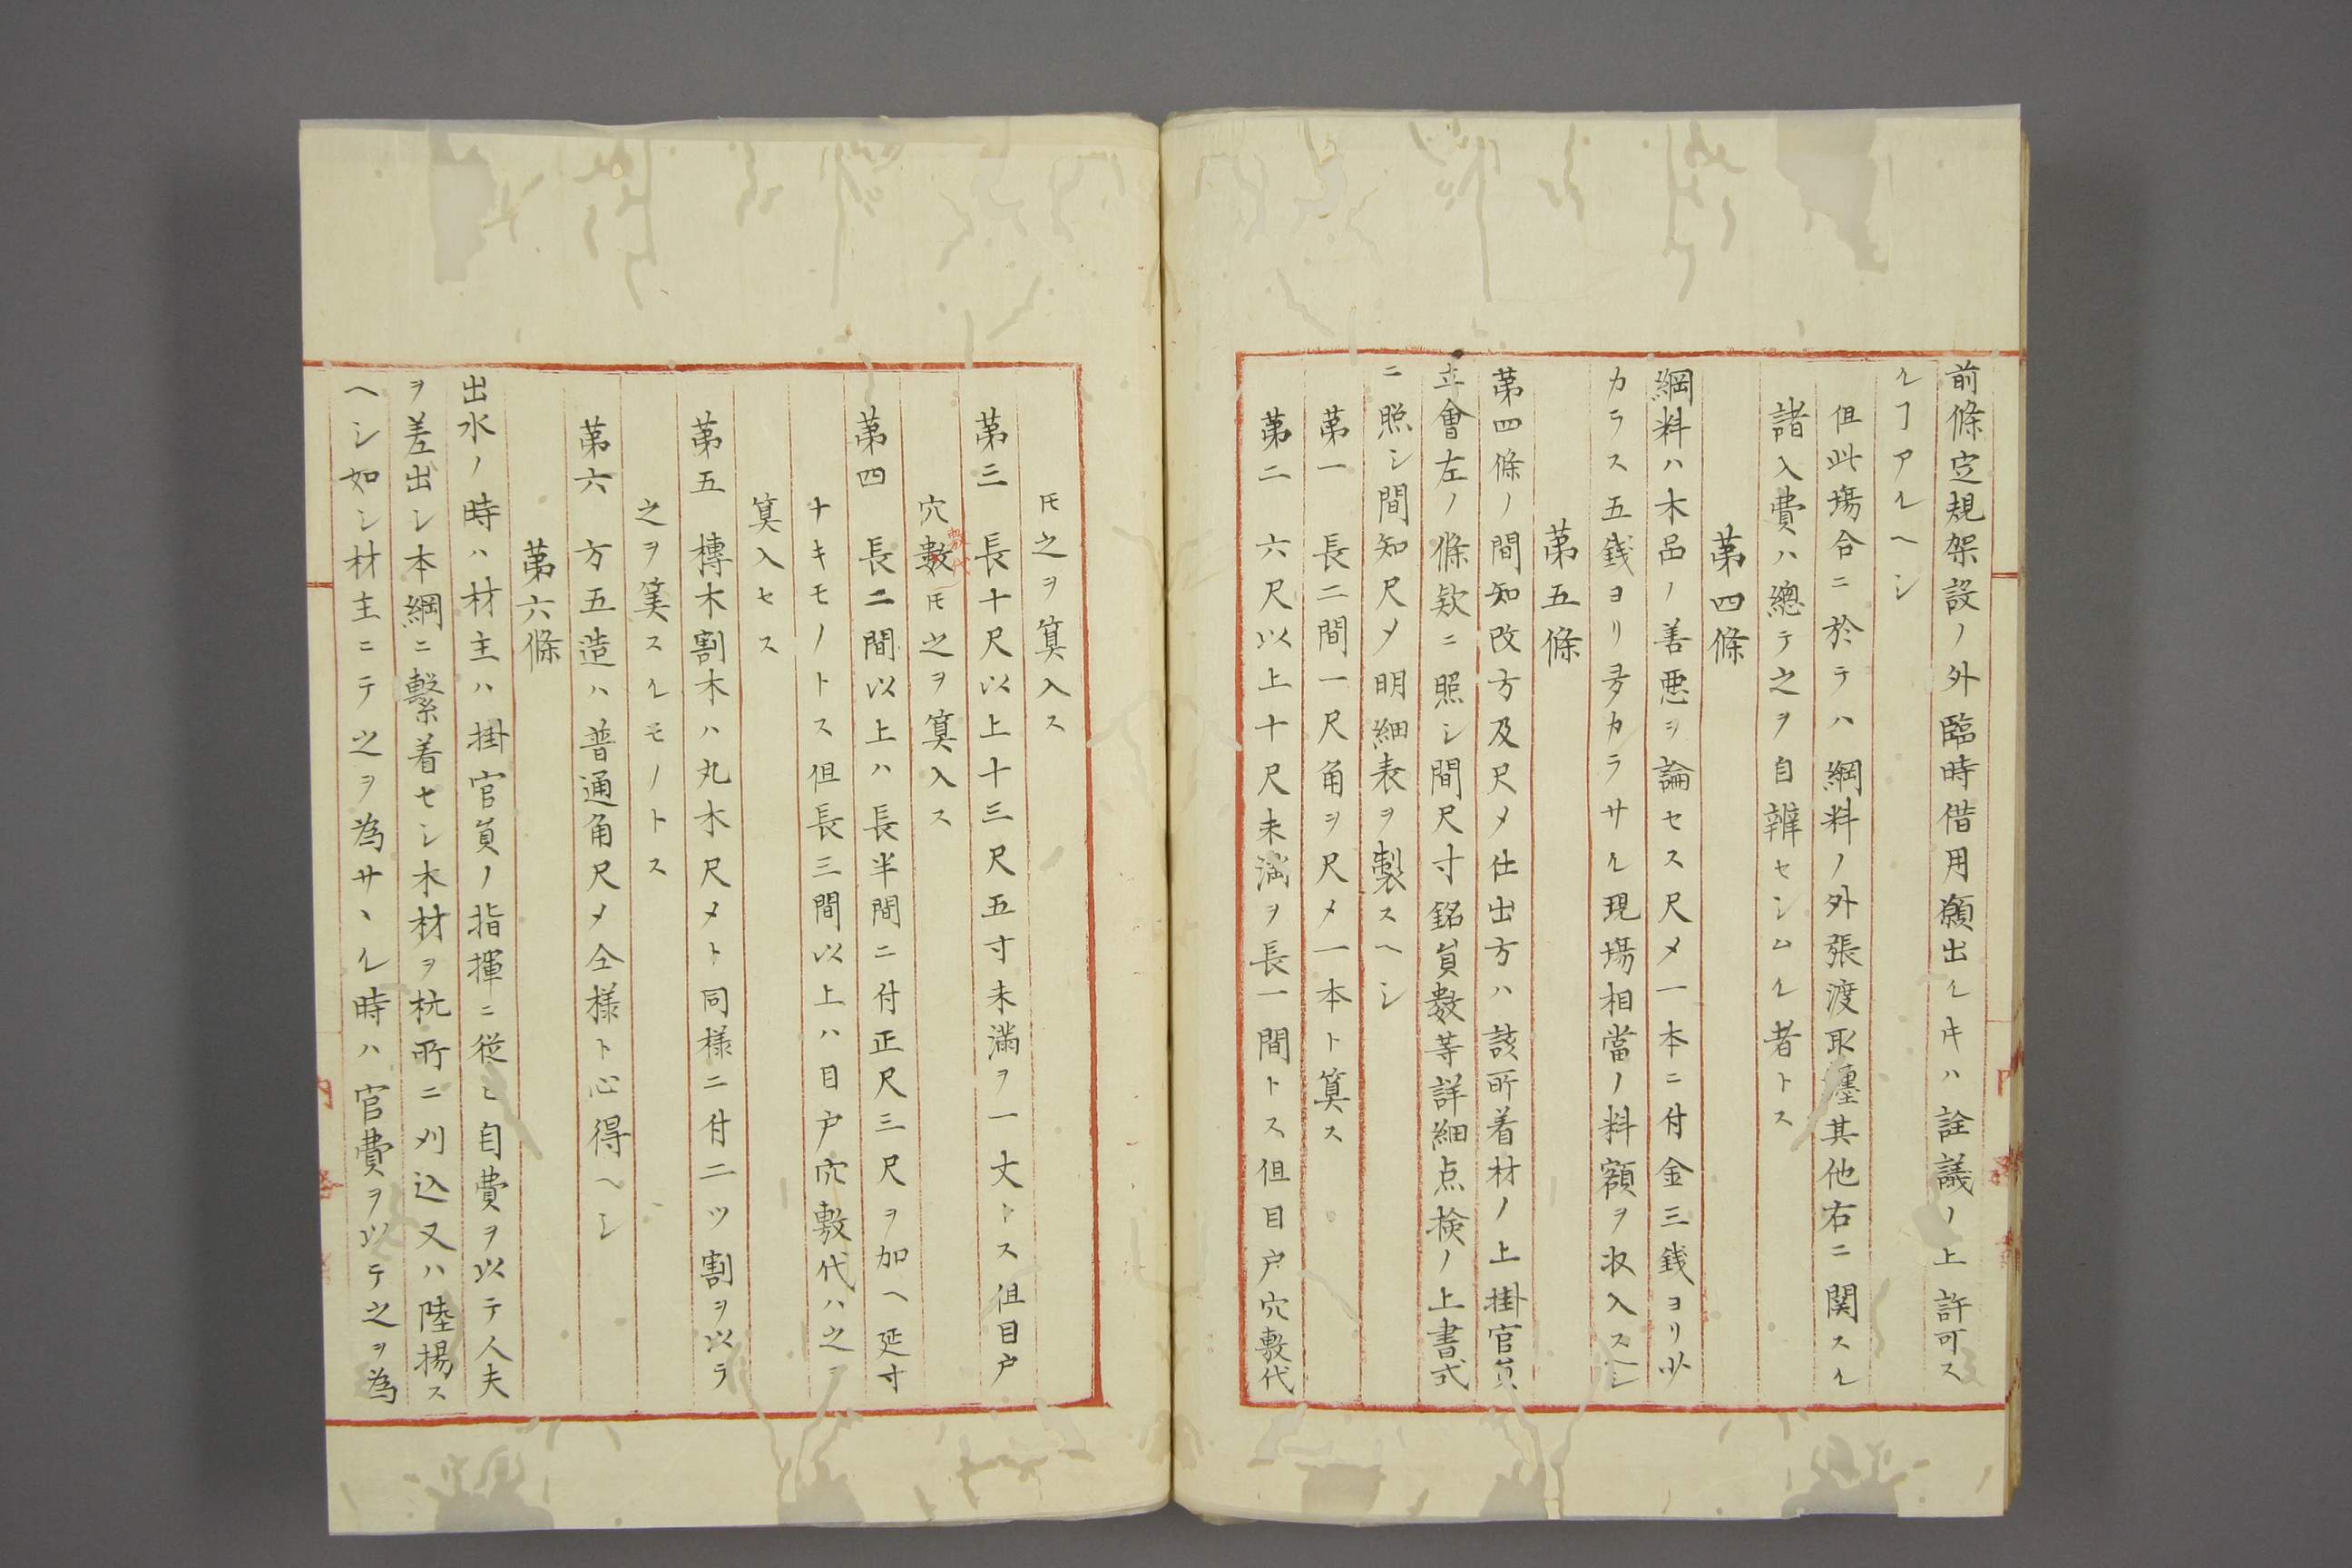 前條定規架設ノ外臨時借用願出ルキハ詮議ノ上許可ス
ルヿアルヘシ
但此塲合ニ於テハ綱料ノ外張渡取纏其他右ニ関スル
諸入費ハ總テ之ヲ自辨セシムル者トス
第四條
綱料ハ木品ノ善悪ヲ論セス尺〆一本ニ付金三銭ヨリ少
カラス五銭ヨリ多カラサル現塲相當ノ料額ヲ収入スヘシ
第五條
第四條ノ間知改方及尺〆仕出方ハ該所着材ノ上掛官員
立會左ノ條欵ニ照シ間尺寸銘員數等詳細点検ノ上書式
ニ照シ間知尺〆明細表ヲ製スヘシ
第一　長二間一尺角ヲ尺〆一本ト算ス
第二　六尺以上十尺未満ヲ長一間トス但目戸穴敷代
𪜈之ヲ算入ス
第三　長十尺以上十三尺五寸未満ヲ一丈トス但目戸
穴數敷代𪜈之ヲ算入ス
第四　長二間以上ハ長半間ニ付正尺三尺ヲ加ヘ延寸
ナキモノトス但長三間以上ハ目戸穴敷代ハ之ヲ
算入セス
第五　榑木割木ハ丸木尺〆ト同様ニ付二ツ割ヲ以テ
之ヲ算スルモノトス
第六　方五造ハ普通角尺〆仝様ト心得ヘシ
第六條
出水ノ時ハ材主ハ掛官員ノ指揮ニ従ヒ自費ヲ以テ人夫
ヲ差出シ本綱ニ繋着セシ木材ヲ杭所ニ刈込又ハ陸揚ス
ヘシ如シ材主ニテ之ヲ為サヽル時ハ官費ヲ以テ之ヲ為